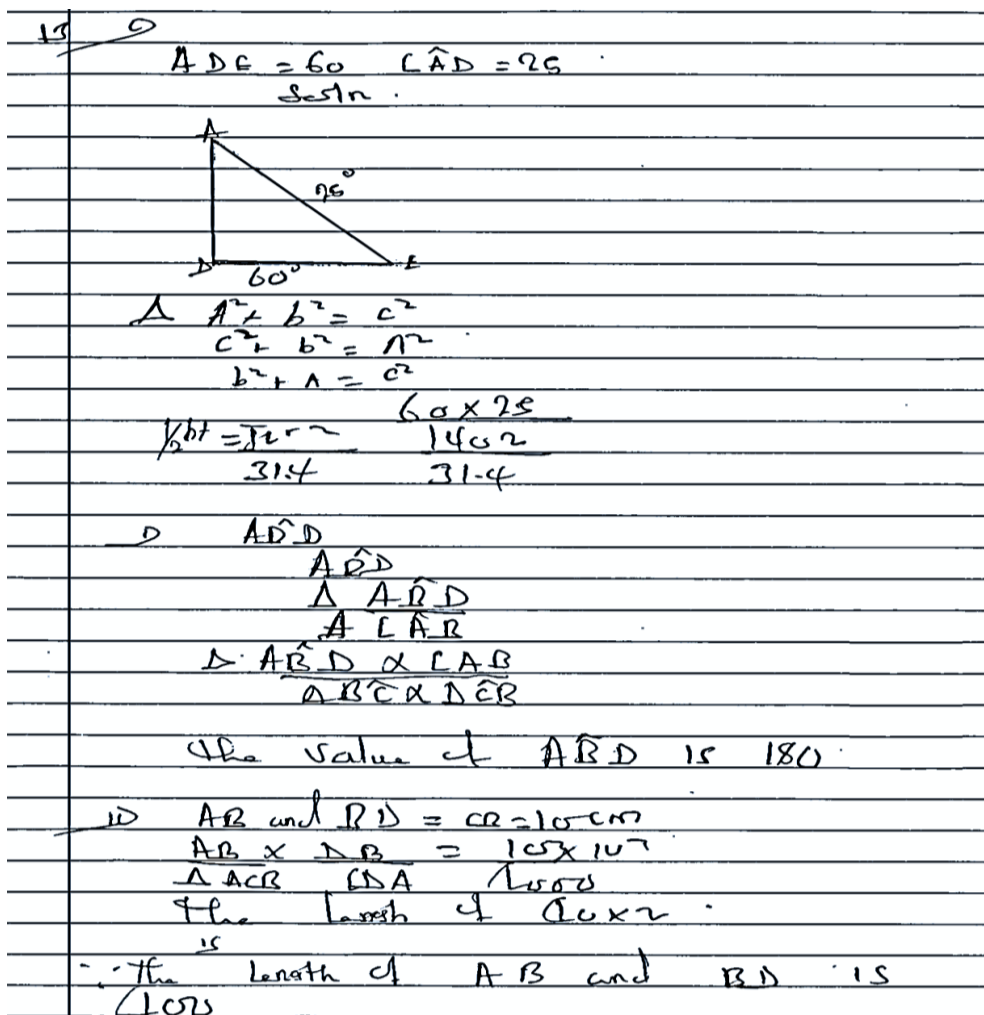 13
ADE = 60 CÂD = 25
Soln.
A
25°
D 60° E
Δ A² + b² = c²
c² + b² = A²
b² + A = c²
60 × 25
½bh = πr² 1402
31.4 31.4
AD̂D
AB̂D
Δ AB̂D
Δ CÂB
Δ. AB̂D α CAB
ABĈ α DĈB
The value of AB̂D is 180
AB and BD = CB = 10cm
AB × DB = 10 × 10²
Δ ACB CDA 1000
The of 10×2.
is
∴ The length of AB and BD is
100